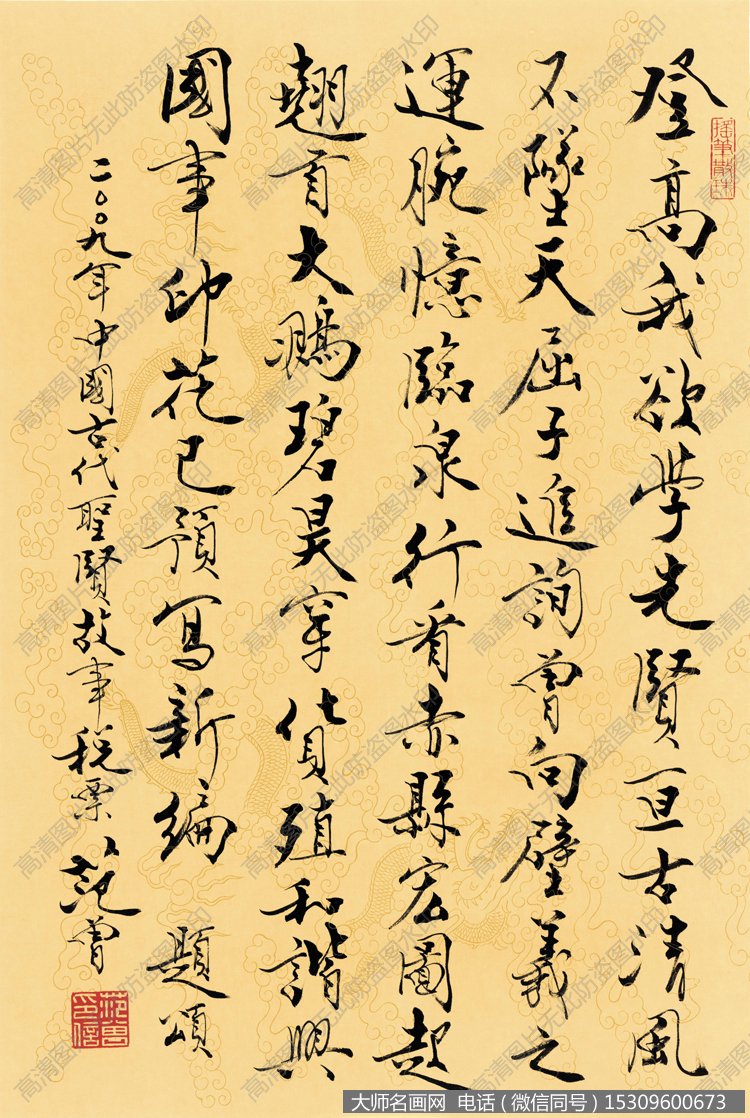 登高我欲學先賢亘古清風
不墜天屈子進詢曾向壁羲之
運腕憶臨泉行看赤縣宏圖起
翹首大鵬碧昊穿貨殖和諧興
國事印花已預寫新編 題頌
二〇〇九年中國古代聖賢故事稅票 范曾
搖筆散珠
范曾印信
高清图片无此防盗图水印
大师名画网 电话（微信同号）15309600673